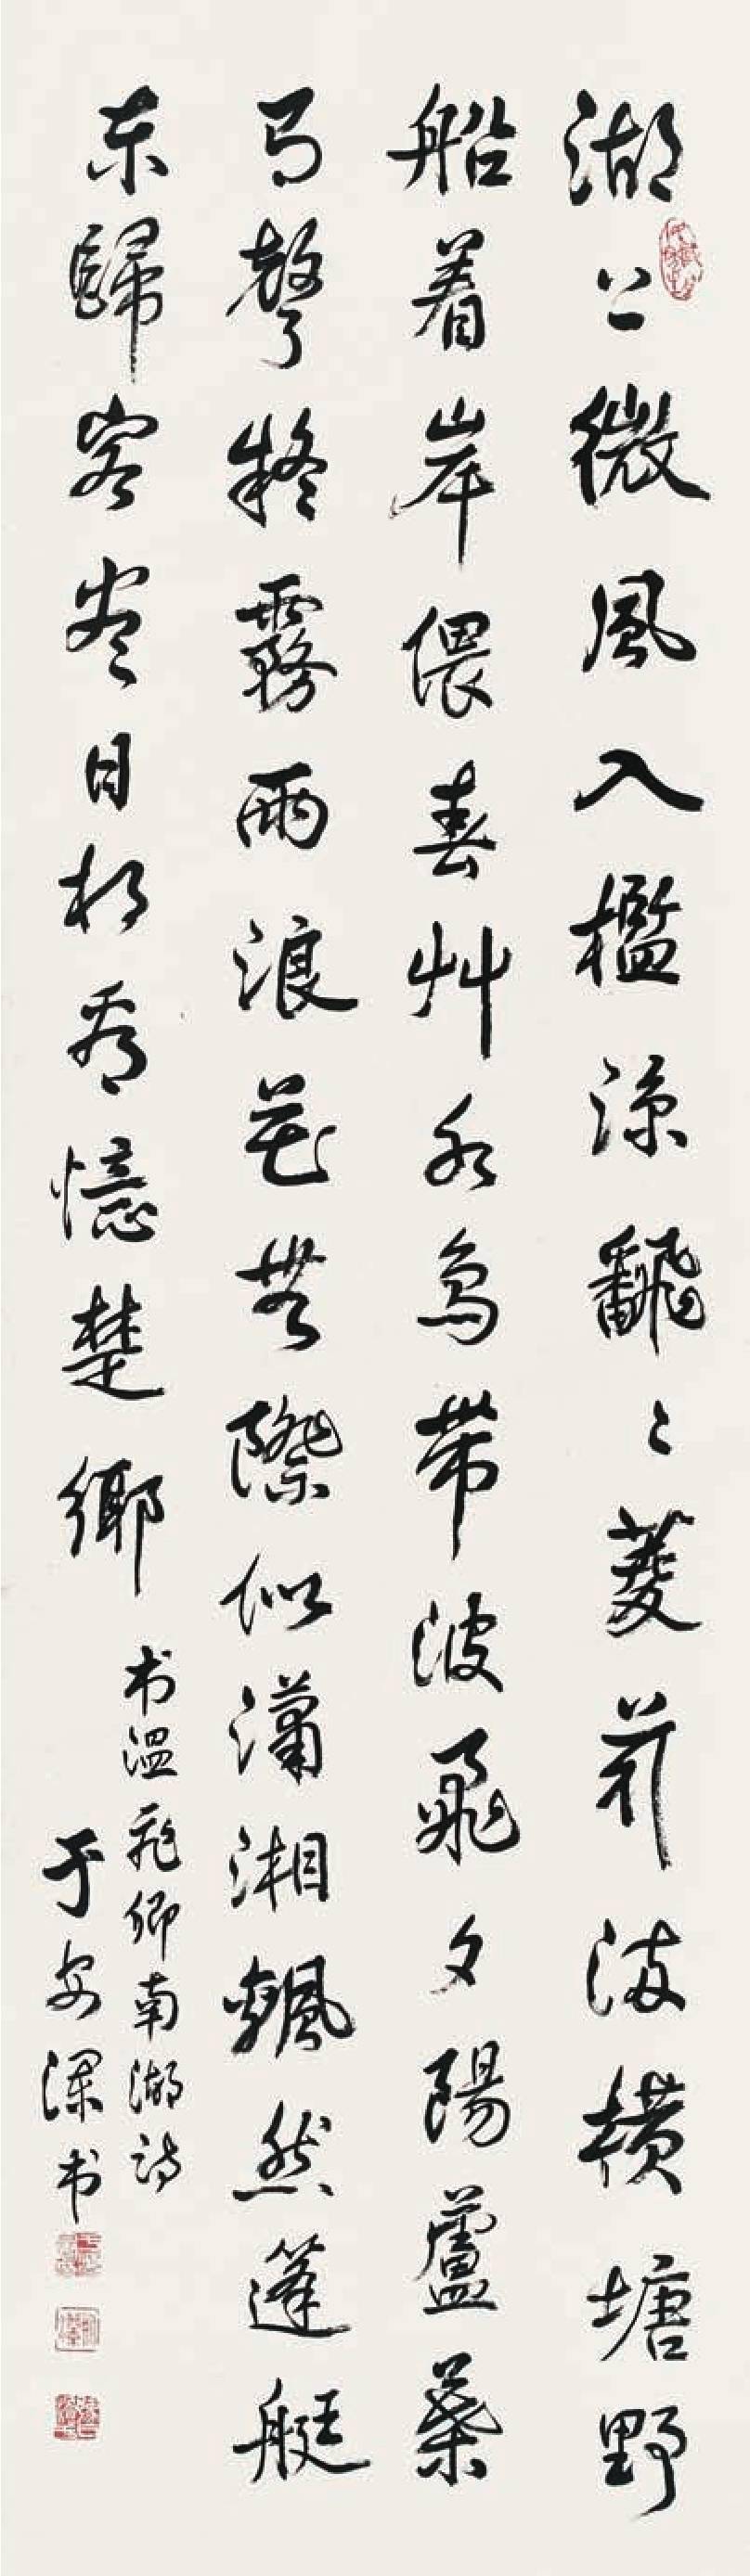 湖上微風入檻涼飜〻菱荇满横塘野
船着岸偎春艸水鳥带波飛夕陽蘆葉
有聲疑霧雨浪花無際似瀟湘飄然篷艇
东歸客尽日相看憶楚鄉
书温飛卿南湖诗
于安澜书